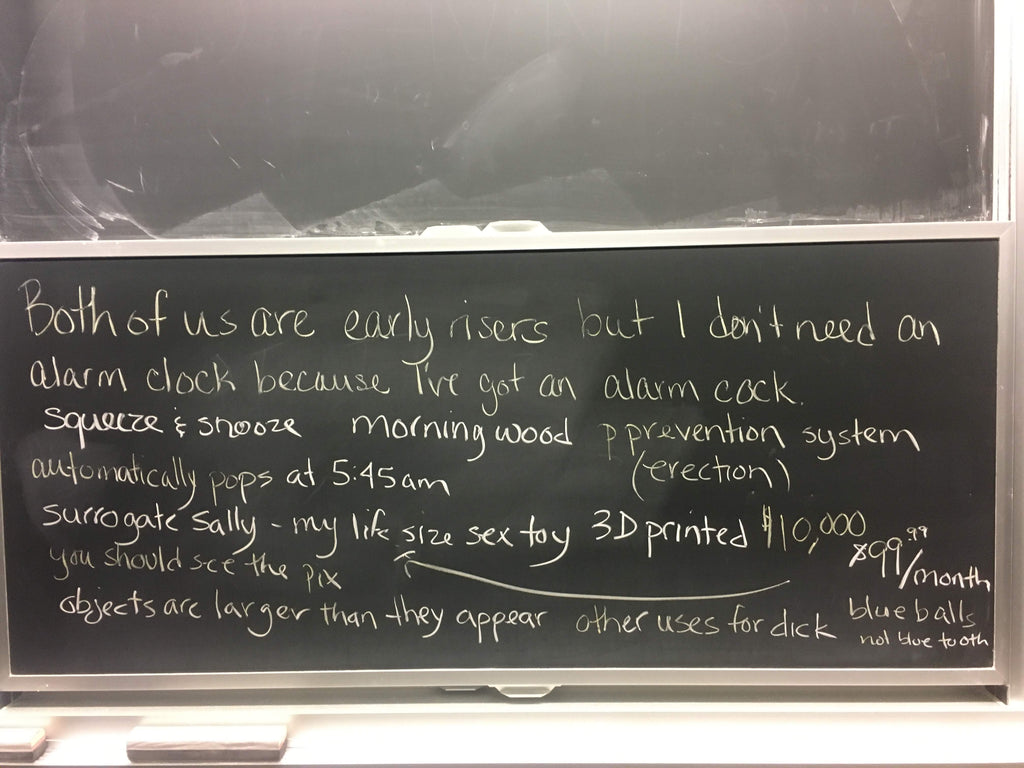 Both of us are early risers but I don't need an
alarm clock because I've got an alarm cock.
squeeze & snooze morning wood p prevention system
(erection)
automatically pops at 5:45am
surrogate Sally - my life size sex toy 3D printed $10,000
$99.99/month
you should see the pix
objects are larger than they appear other uses for dick blue balls
not blue tooth